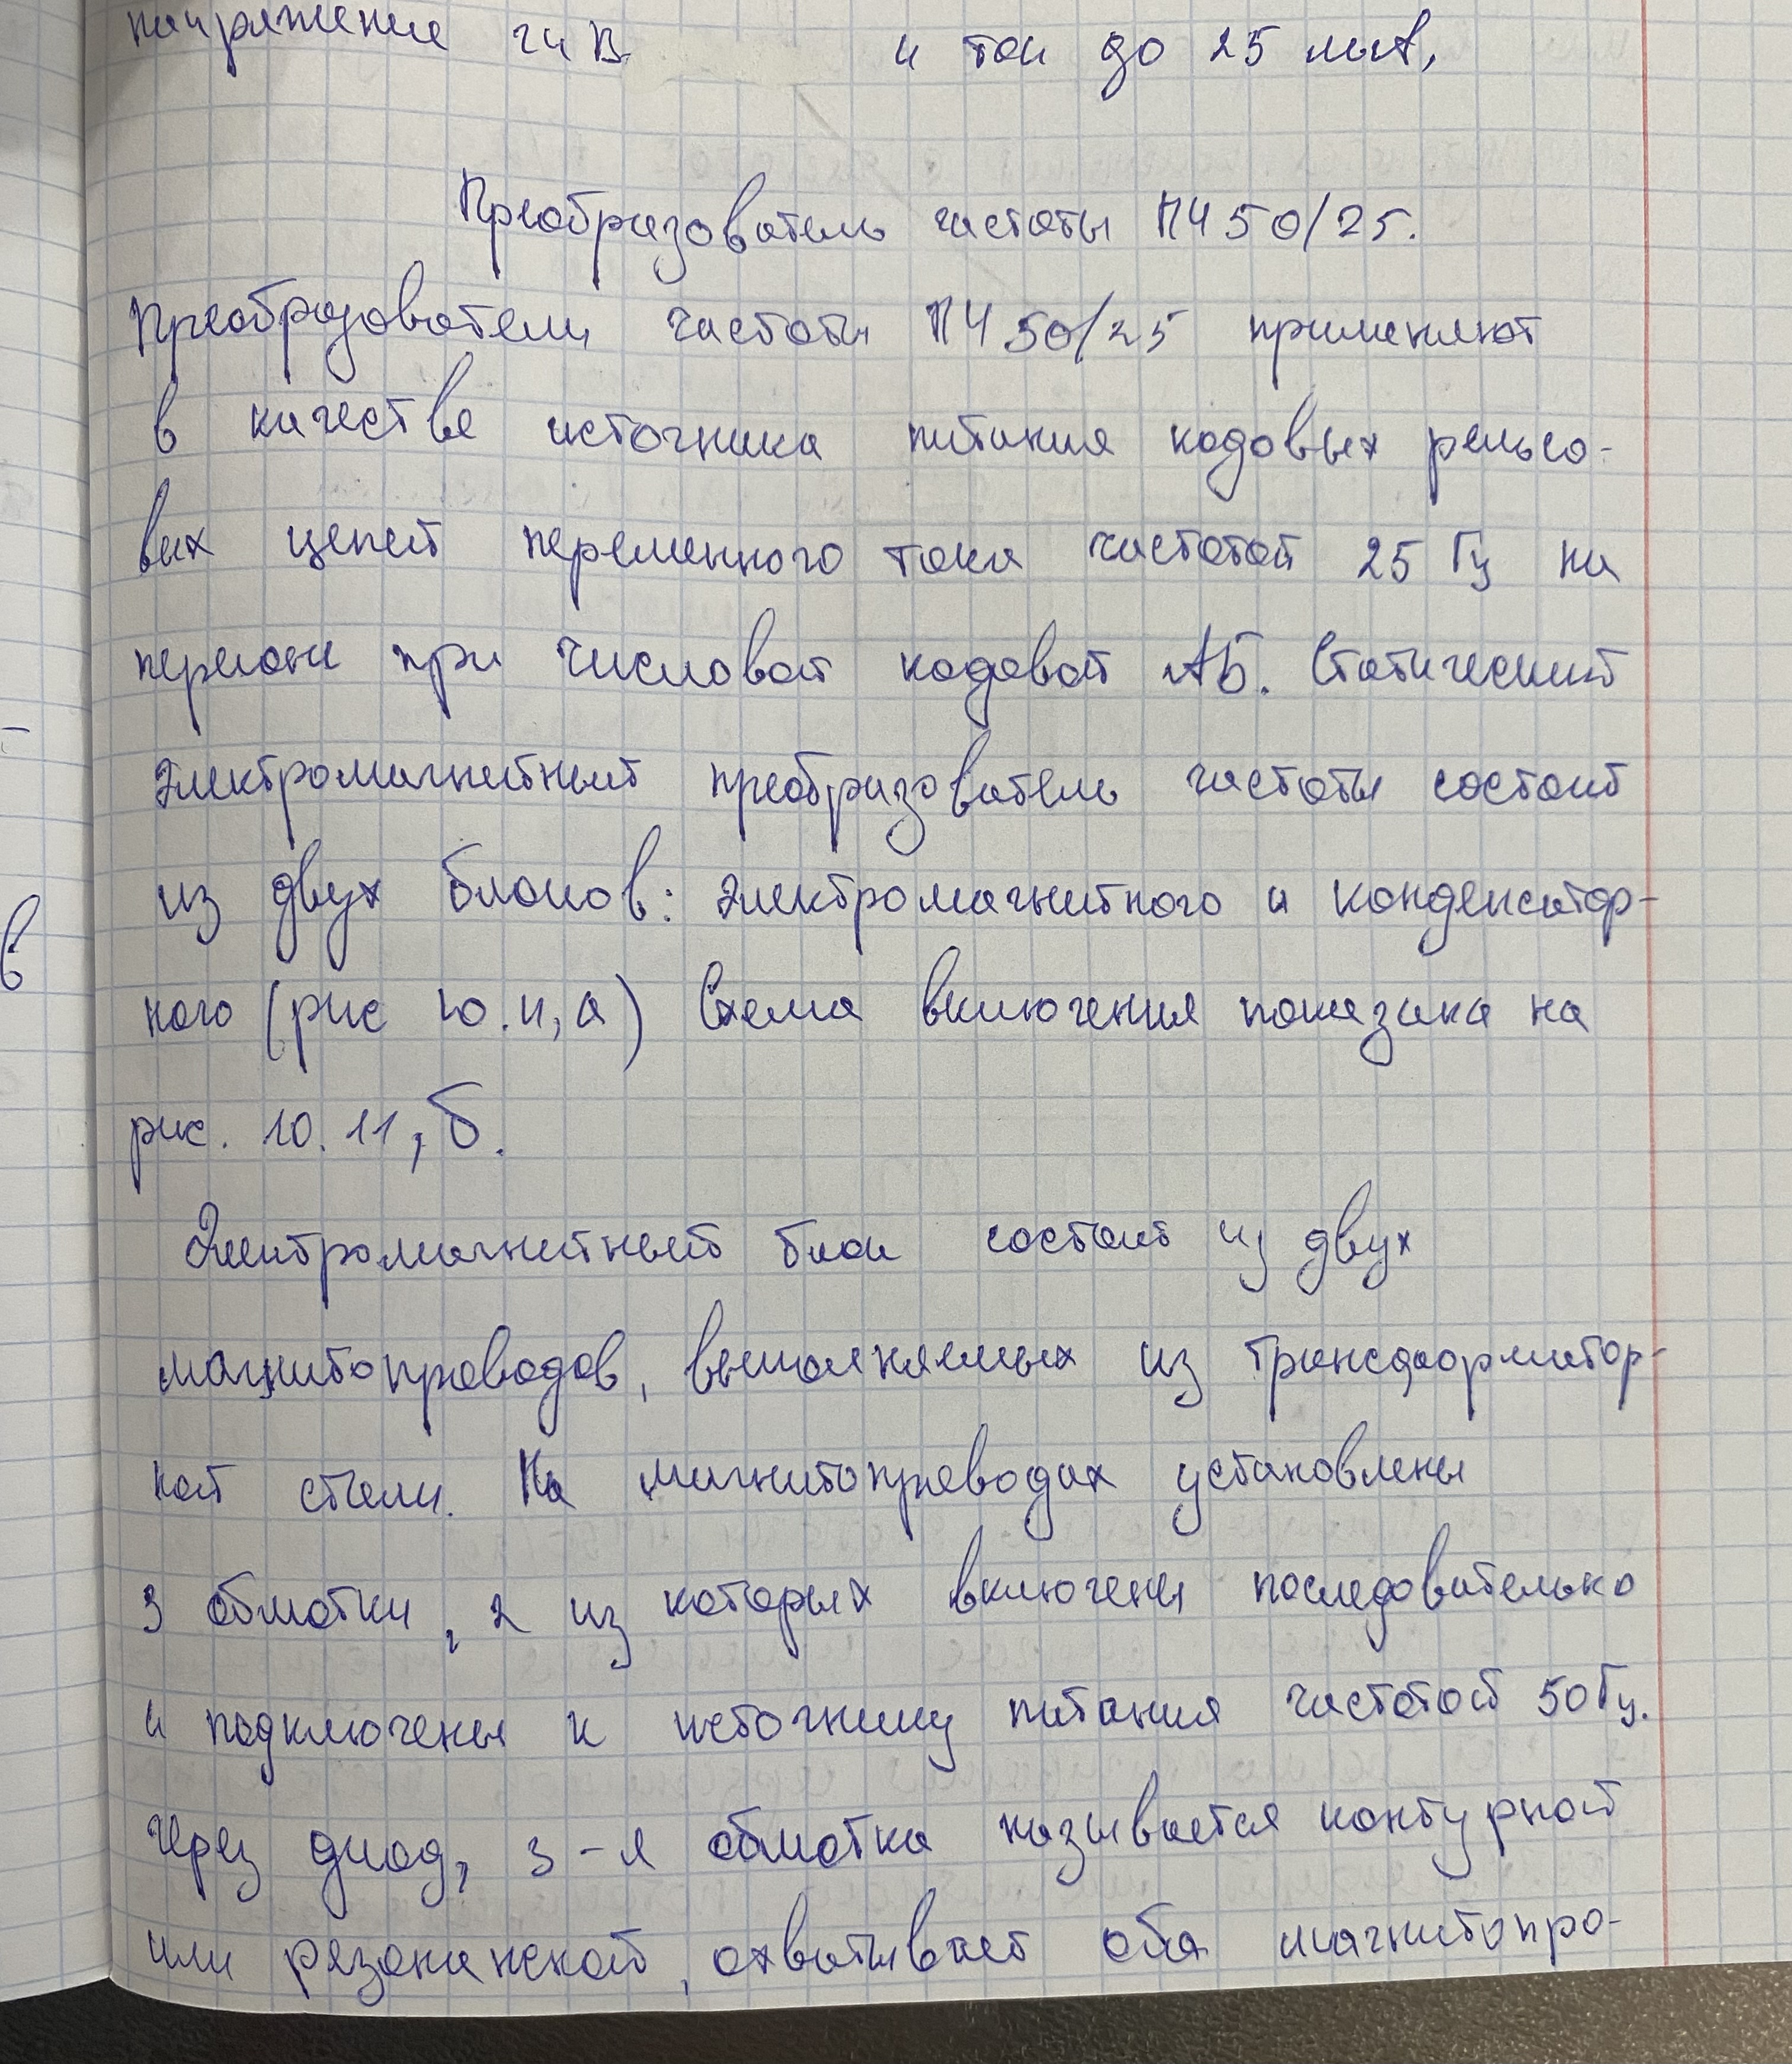 напряжение 24 В и ток до 25 мА,
Преобразователь частоты ПЧ 50/25.
Преобразователи частоты ПЧ 50/25 применяют
в качестве источника питания кодовых рельсо-
вых цепей переменного тока частотой 25 Гц на
перегоне при числовой кодовой АБ. Статический
электромагнитный преобразователь частоты состоит
из двух блоков: электромагнитного и конденсатор-
ного (рис 10.11, а) Схема включения показана на
рис. 10.11, б.
Электромагнитный блок состоит из двух
магнитопроводов, выполняемых из трансформатор-
ной стали. На магнитопроводах установлены
3 обмотки, 2 из которых включены последовательно
и подключены к источнику питания частотой 50 Гц.
через диод, 3-я обмотка называется контурной
или резонансной, охватывает оба магнитопро-
в